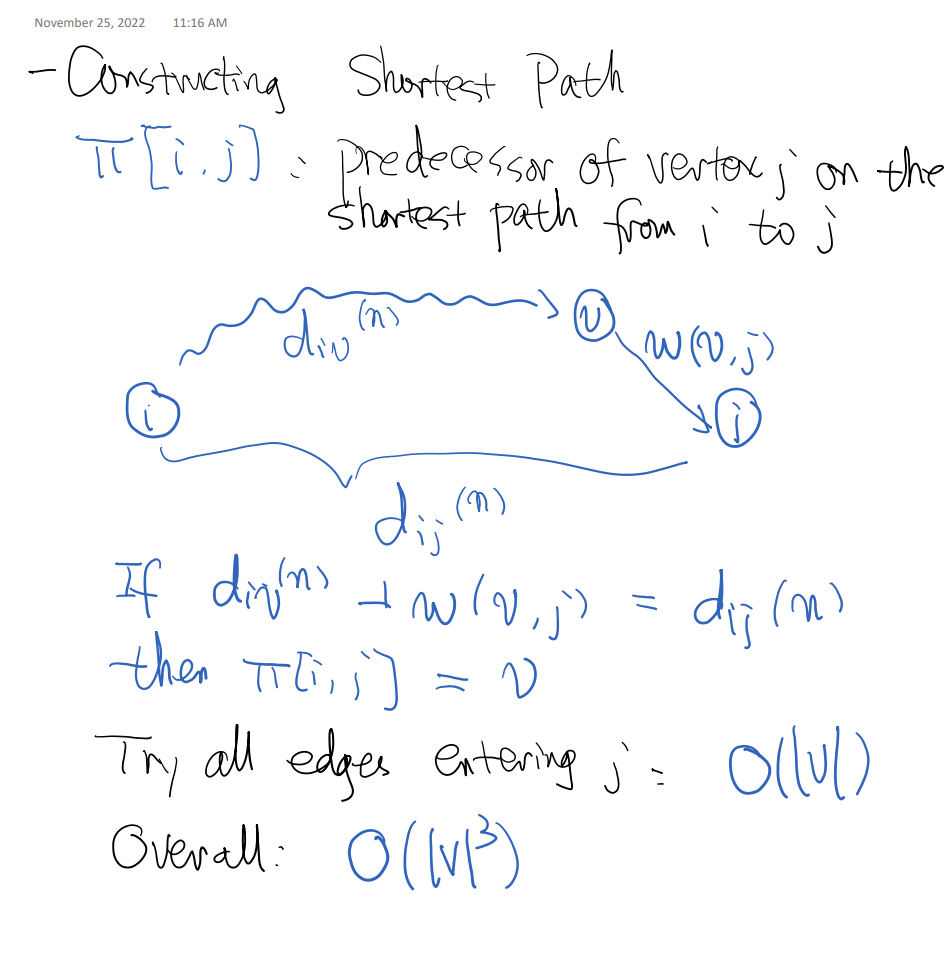 November 25, 2022 11:16 AM
- Constructing Shortest Path
π[i,j] : predecessor of vertex j on the
shortest path from i to j
d_iv^(n)
v
w(v,j)
i
j
d_ij^(n)
If d_iv^(n) + w(v,j) = d_ij^(n)
then π[i,j] = v
Try all edges entering j : O(|V|)
Overall: O(|V|^3)